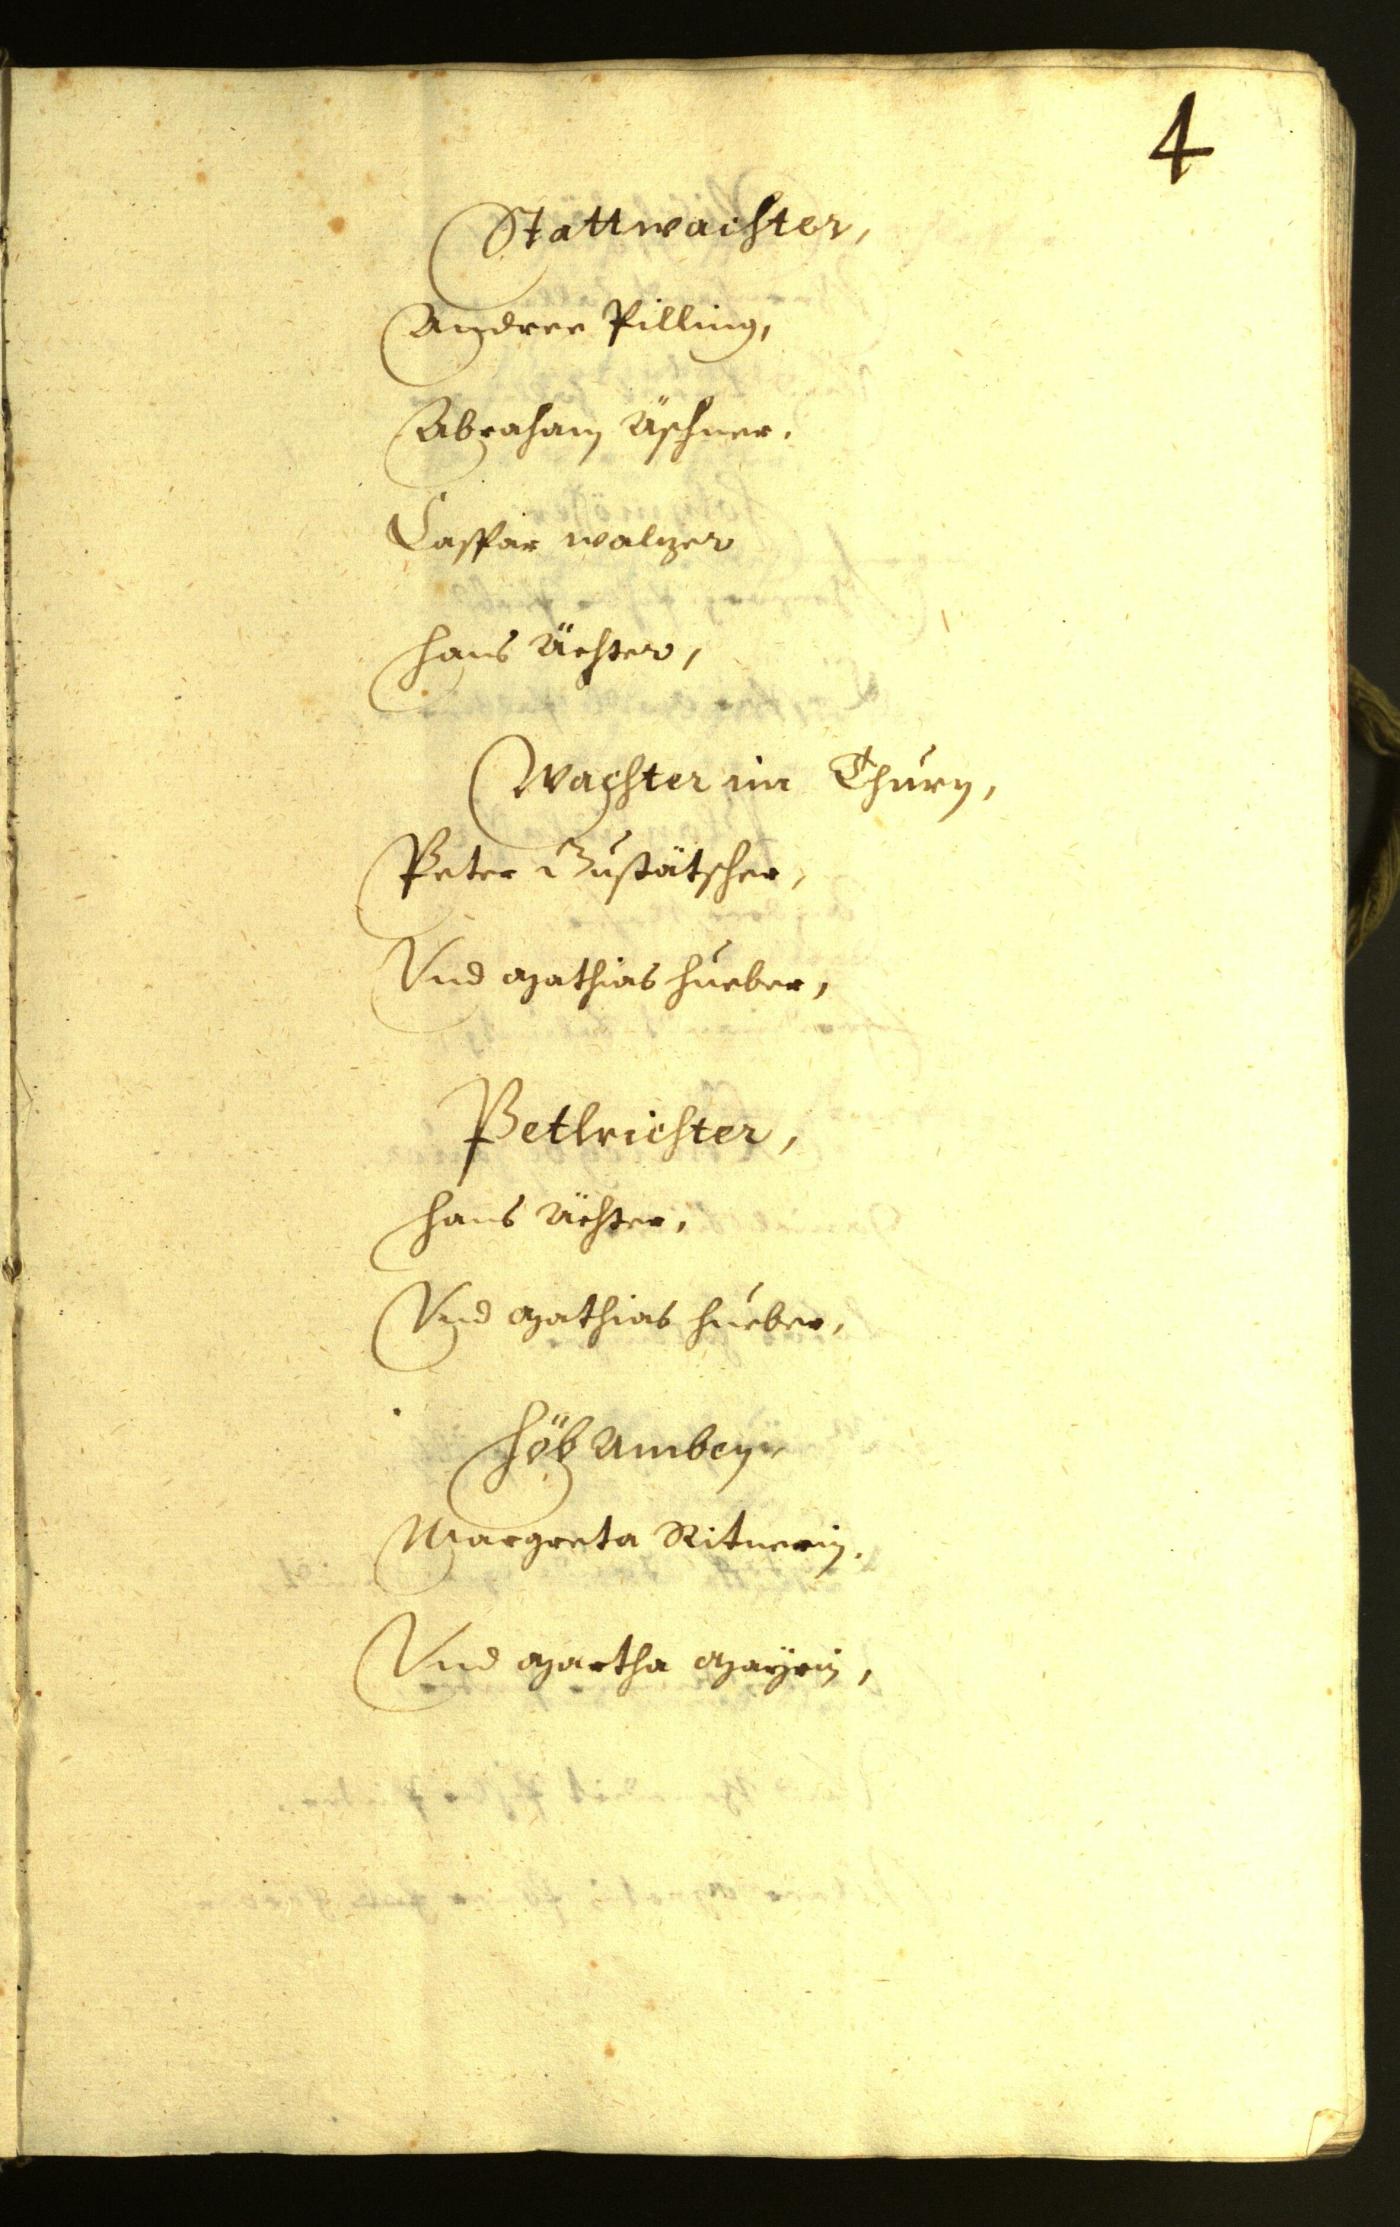 4
Stattwachter,
Andree Pilling,
Abraham Äschner.
Caspar walzer
Hans Ächter,
Wachter im Thurn,
Peter Gustätscher,
Vnd Mathias Hueber,
Petlrichter,
Hans Ächter,
Vnd Mathias Hueber,
Höb Amben
Margreta Ritnerin.
Vnd Martha Mayrin,